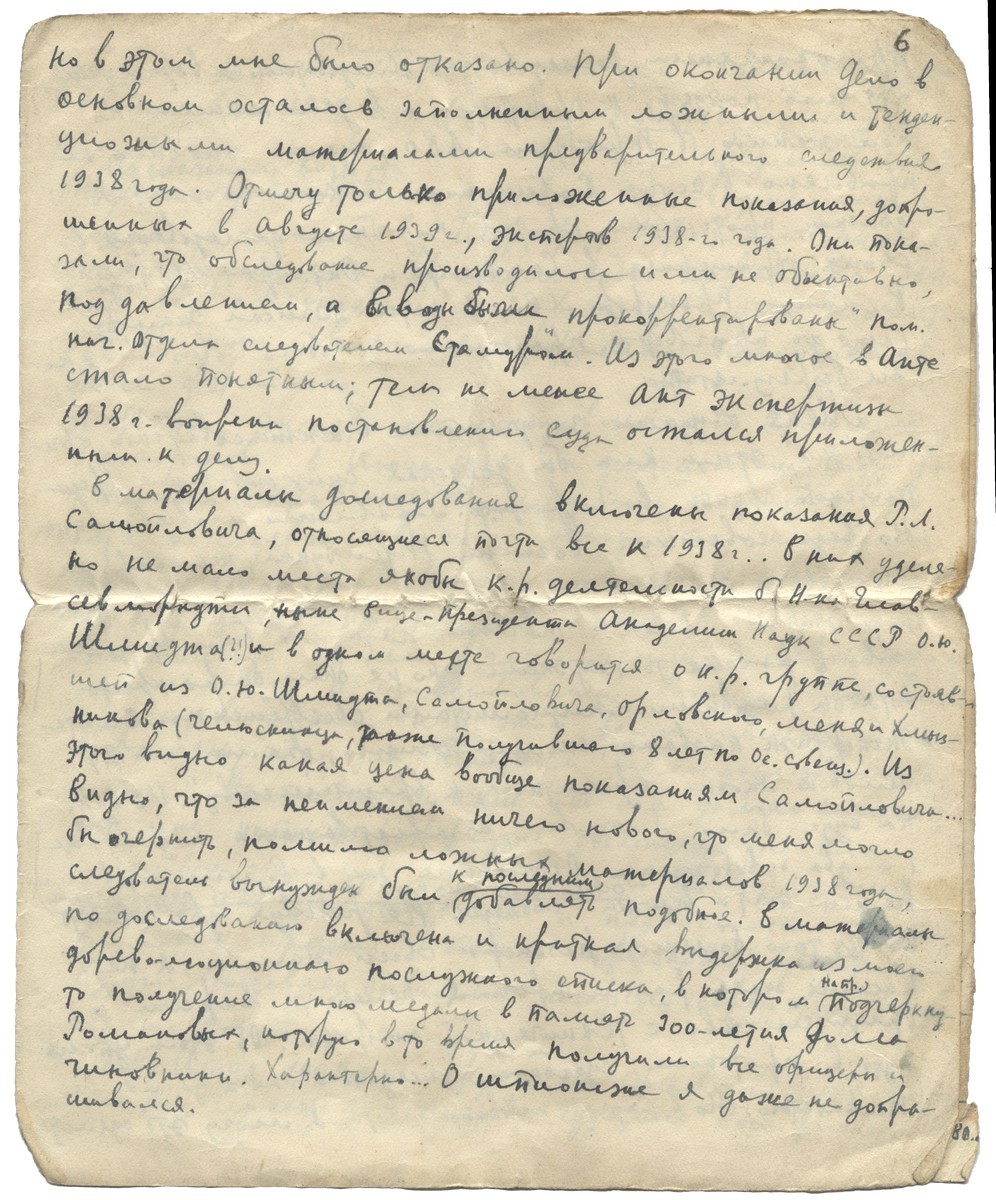 6
но в этом мне было отказано. При окончании дело в
основном осталось заполненным ложными и тенден-
циозными материалами предварительного следствия
1938 года. Отмечу только приложенные показания, допро-
шенных в августе 1939 г., экспертов 1938-го года. Они пока-
зали, что обследование производилось ими не объективно,
под давлением, а выводы были прокорректированы" пом.
нач. отдела следователем Стамуром". Из этого многое в Акте
стало понятным; тем не менее Акт экспертизы
1938 г. вопреки постановлению суда остался приложен-
ным к делу.
В материалы доследования включены показания Р.Л.
Самойловича, относящиеся почти все к 1938 г.. В них уделе-
но не мало места якобы к.р. деятельности б. Н-ка Глав-
севморпути, ныне вице-президента Академии Наук СССР О.Ю.
Шмидта(?!) и в одном месте говорится о к.р. группе, состояв-
шей из О.Ю. Шмидта, Самойловича, Орловского, меня и Хмыз-
никова (челюскинца, также получившего 8 лет по Ос. совещ.). Из
этого видно какая цена вообще показаниям Самойловича...
Видно, что за неимением ничего нового, что меня могло
бы очернить, помимо ложных материалов 1938 года,
следователь вынужден был к последним добавлять подобное. В материалы
по доследованию включена и краткая выдержка из моего
дореволюционного послужного списка, в котором напр. подчеркну-
то получение мною медали в память 300-летия Дома
Романовых, которую в то время получили все офицеры и
чиновники. Характерно... О шпионаже я даже не допра-
шивался.
80..